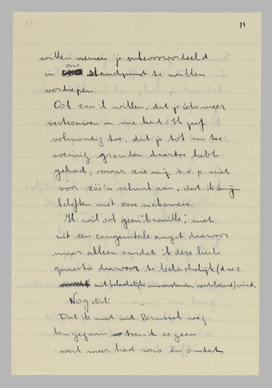 11
willen nemen je onbevooroordeeld
in ons standpunt te willen
verdiepen.
Ook zou 't willen, dat je iets meer
vertrouwen in me had. Ik geef
volmondig toe, dat je tot nu toe
weinig gronden daartoe hebt
gehad, maar zie mij s.v.p. niet
voor zóó'n schurk aan, dat ik mijn
beloften niet zou nakomen.
Ik wil ook geen brouille; niet
uit een congenitale angst daarvoor
maar alleen omdat ik deze heele
quaestie daarvoor te belachelijk (d.w.z.
uit belachelijke voortvloeiend) vind.
Nog dit:
Dat ik niet uit Brussel weg
ben gegaan toen er geen
werk meer had was én omdat